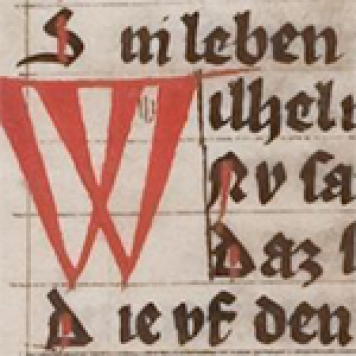 S in leben
Wilhel
Nv sa
Daz
D ie vf den